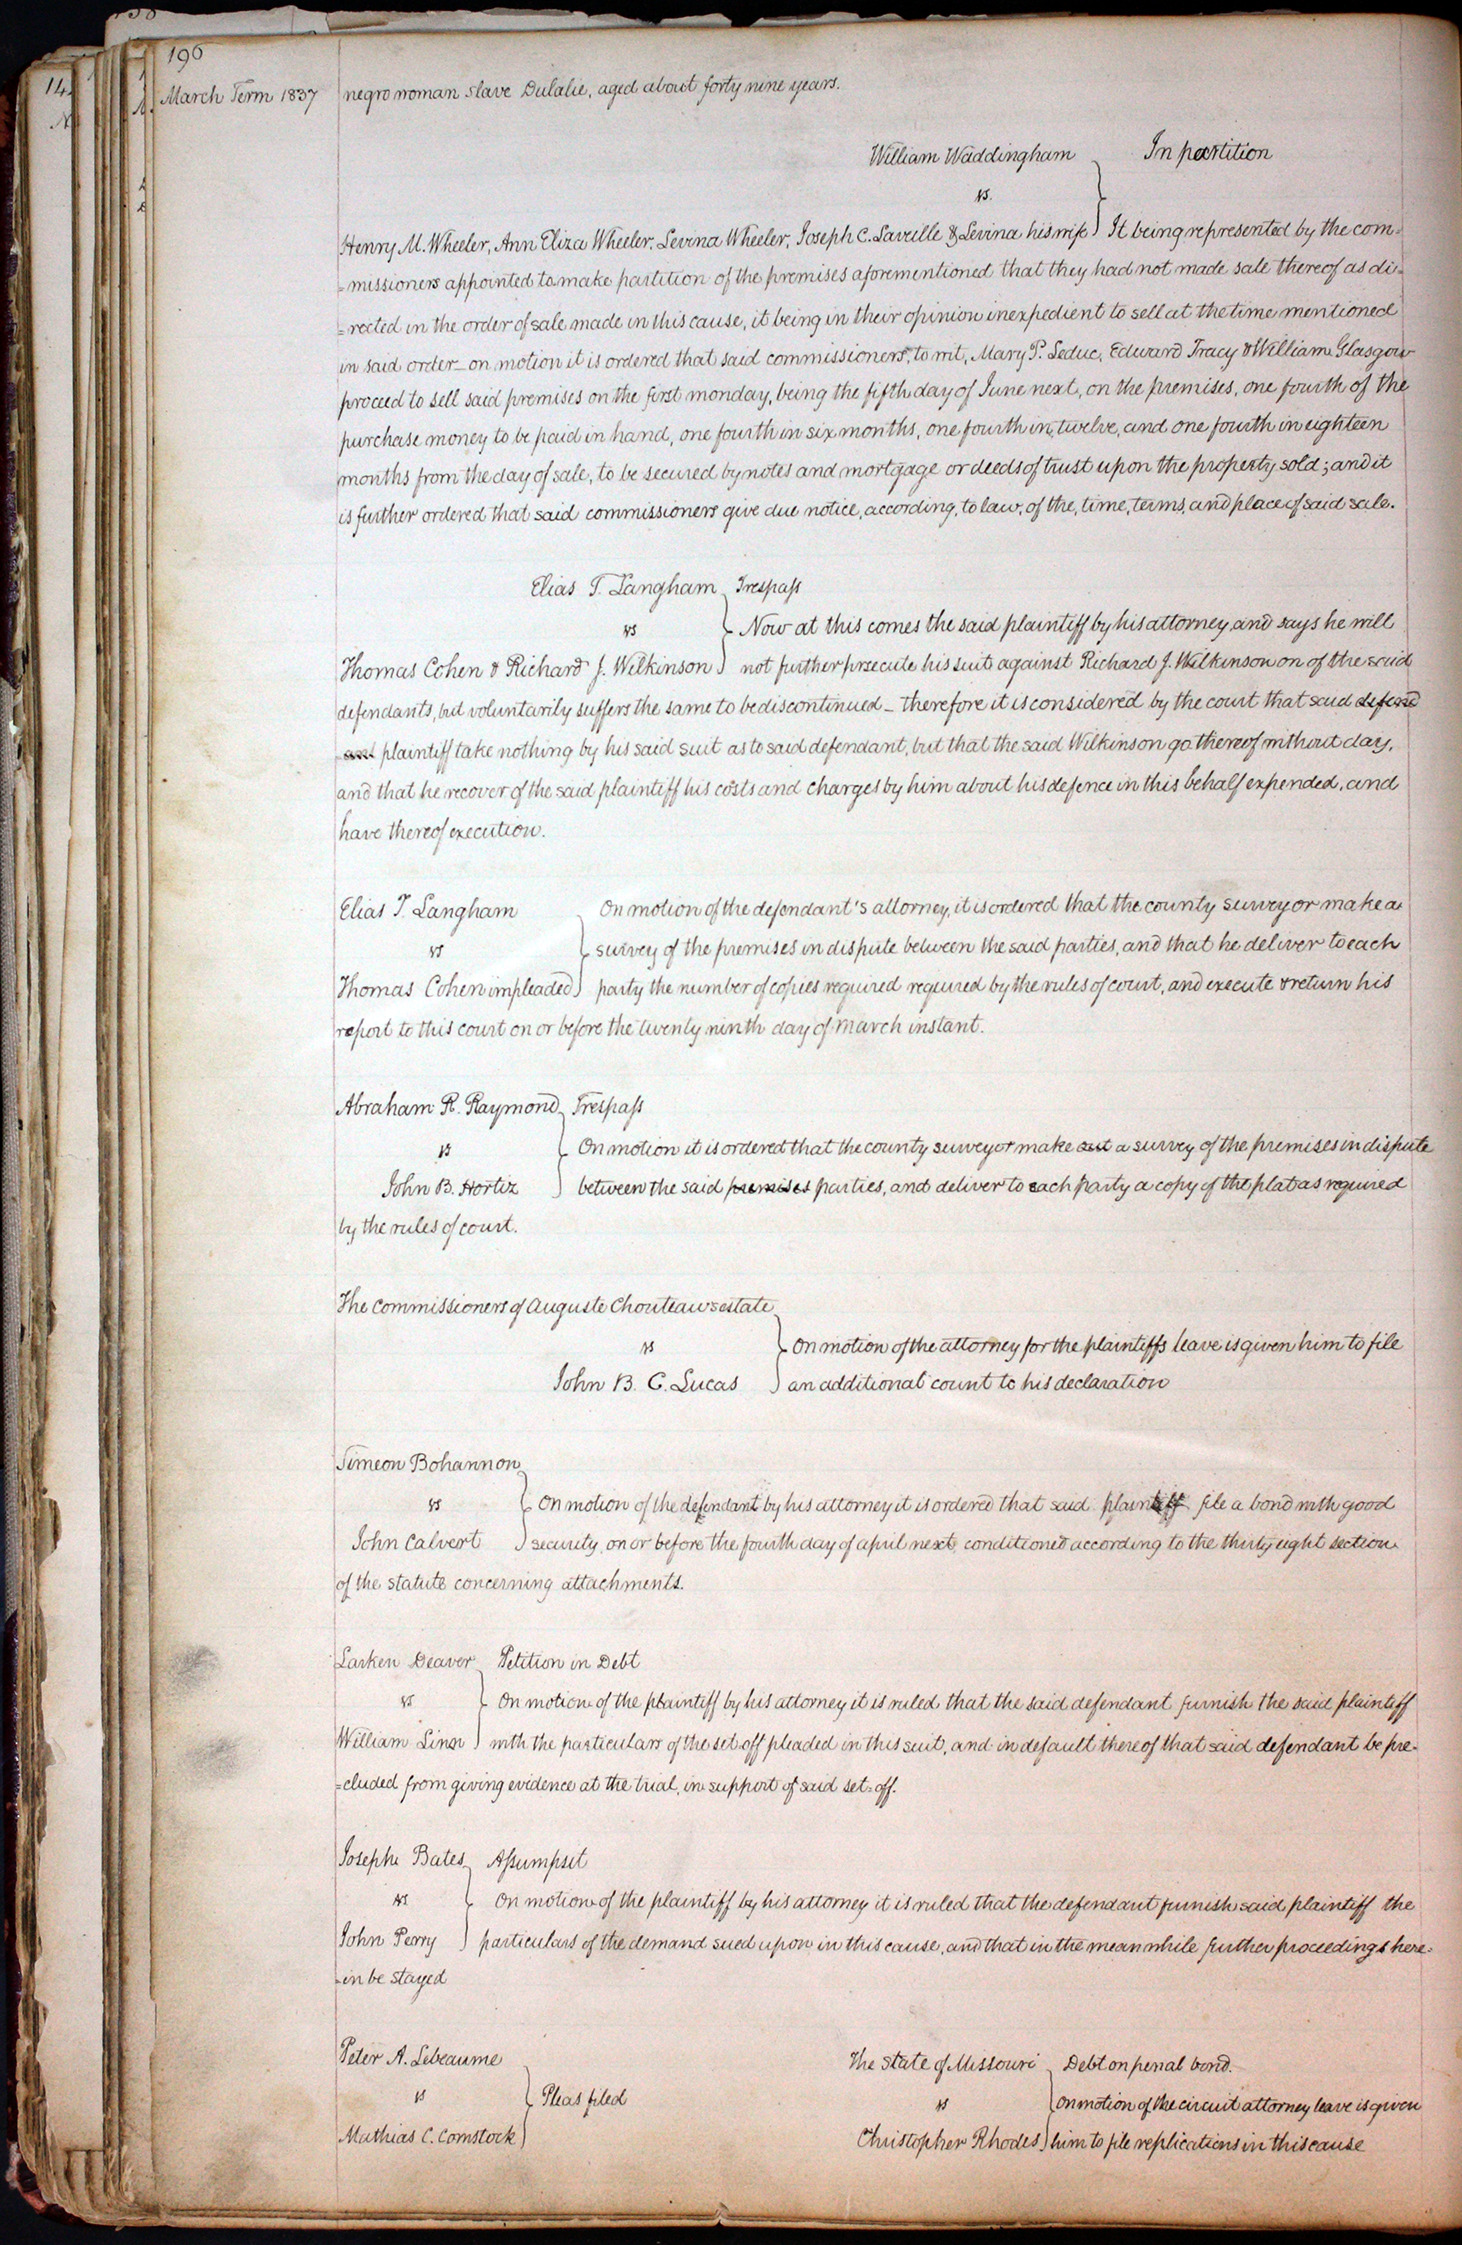 196
March Term 1837
negro woman slave Dulalie, aged about forty nine years.
William Waddingham
In partition
vs.
Henry M. Wheeler, Ann Eliza Wheeler, Levina Wheeler, Joseph C. Laveille & Levina his wife
It being represented by the com=
=missioners appointed to make partition of the premises aforementioned that they had not made sale thereof as di=
=rected in the order of sale made in this cause, it being in their opinion inexpedient to sell at the time mentioned
in said order_ on motion it is ordered that said commissioners, to wit, Mary P. Leduc, Edward Tracy & William Glasgow
proceed to sell said premises on the first monday, being the fifth day of June next, on the premises, one fourth of the
purchase money to be paid in hand, one fourth in six months, one fourth in twelve, and one fourth in eighteen
months from the day of sale, to be secured by notes and mortgage or deeds of trust upon the property sold; and it
is further ordered that said commissioners give due notice, according, to law, of the, time, terms, and place of said sale.
Elias T. Langham
Trespass
vs
Now at this comes the said plaintiff by his attorney, and says he will
Thomas Cohen & Richard J. Wilkinson
not further prsecute his suit against Richard J. Wilkinson on of the said
defendants, but voluntarily suffers the same to be discontinued_ therefore it is considered by the court that said defend
ant plaintiff take nothing by his said suit as to said defendant, but that the said Wilkinson go thereof without day,
and that he recover of the said plaintiff his costs and charges by him about his defence in this behalf expended, and
have thereof execution.
Elias T. Langham
On motion of the defendant's attorney, it is ordered that the county surveyor make a
vs
survey of the premises in dispute between the said parties, and that he deliver to each
Thomas Cohen impleaded
party the number of copies required required by the rules of court, and execute & return his
report to this court on or before the twenty ninth day of March instant.
Abraham R. Raymond
Trespass
vs
On motion it is ordered that the county surveyor make out a survey of the premises in dispute
John B. Hortiz
between the said premises parties, and deliver to each party a copy of the plat as required
by the rules of court.
The commissioners of Auguste Chouteau's estate
vs
On motion of the attorney for the plaintiffs leave is given him to file
John B. C. Lucas
an additional count to his declaration
Simeon Bohannon
vs
On motion of the defendant by his attorney it is ordered that said plaintiff file a bond with good
John Calvert
security, on or before the fourth day of april next, conditioned according to the thirty eight section
of the statute concerning attachments.
Larken Deaver
Petition in Debt
vs
On motion of the plaintiff by his attorney it is ruled that the said defendant furnish the said plaintiff
William Linn
with the particulars of the set off pleaded in this suit, and in default thereof that said defendant be pre=
=cluded from giving evidence at the trial, in support of said set=off.
Josephe Bates
Assumpsit
vs
On motion of the plaintiff by his attorney it is ruled that the defendant furnish said plaintiff the
John Perry
particulars of the demand sued upon in this cause, and that in the mean while further proceedings here=
=in be stayed
Peter A. Lebeaume
vs
Pleas filed
Mathias C. Comstock
The State of Missouri
Debt on penal bond.
vs
On motion of the circuit attorney leave is given
Christopher Rhodes
him to file replications in this cause